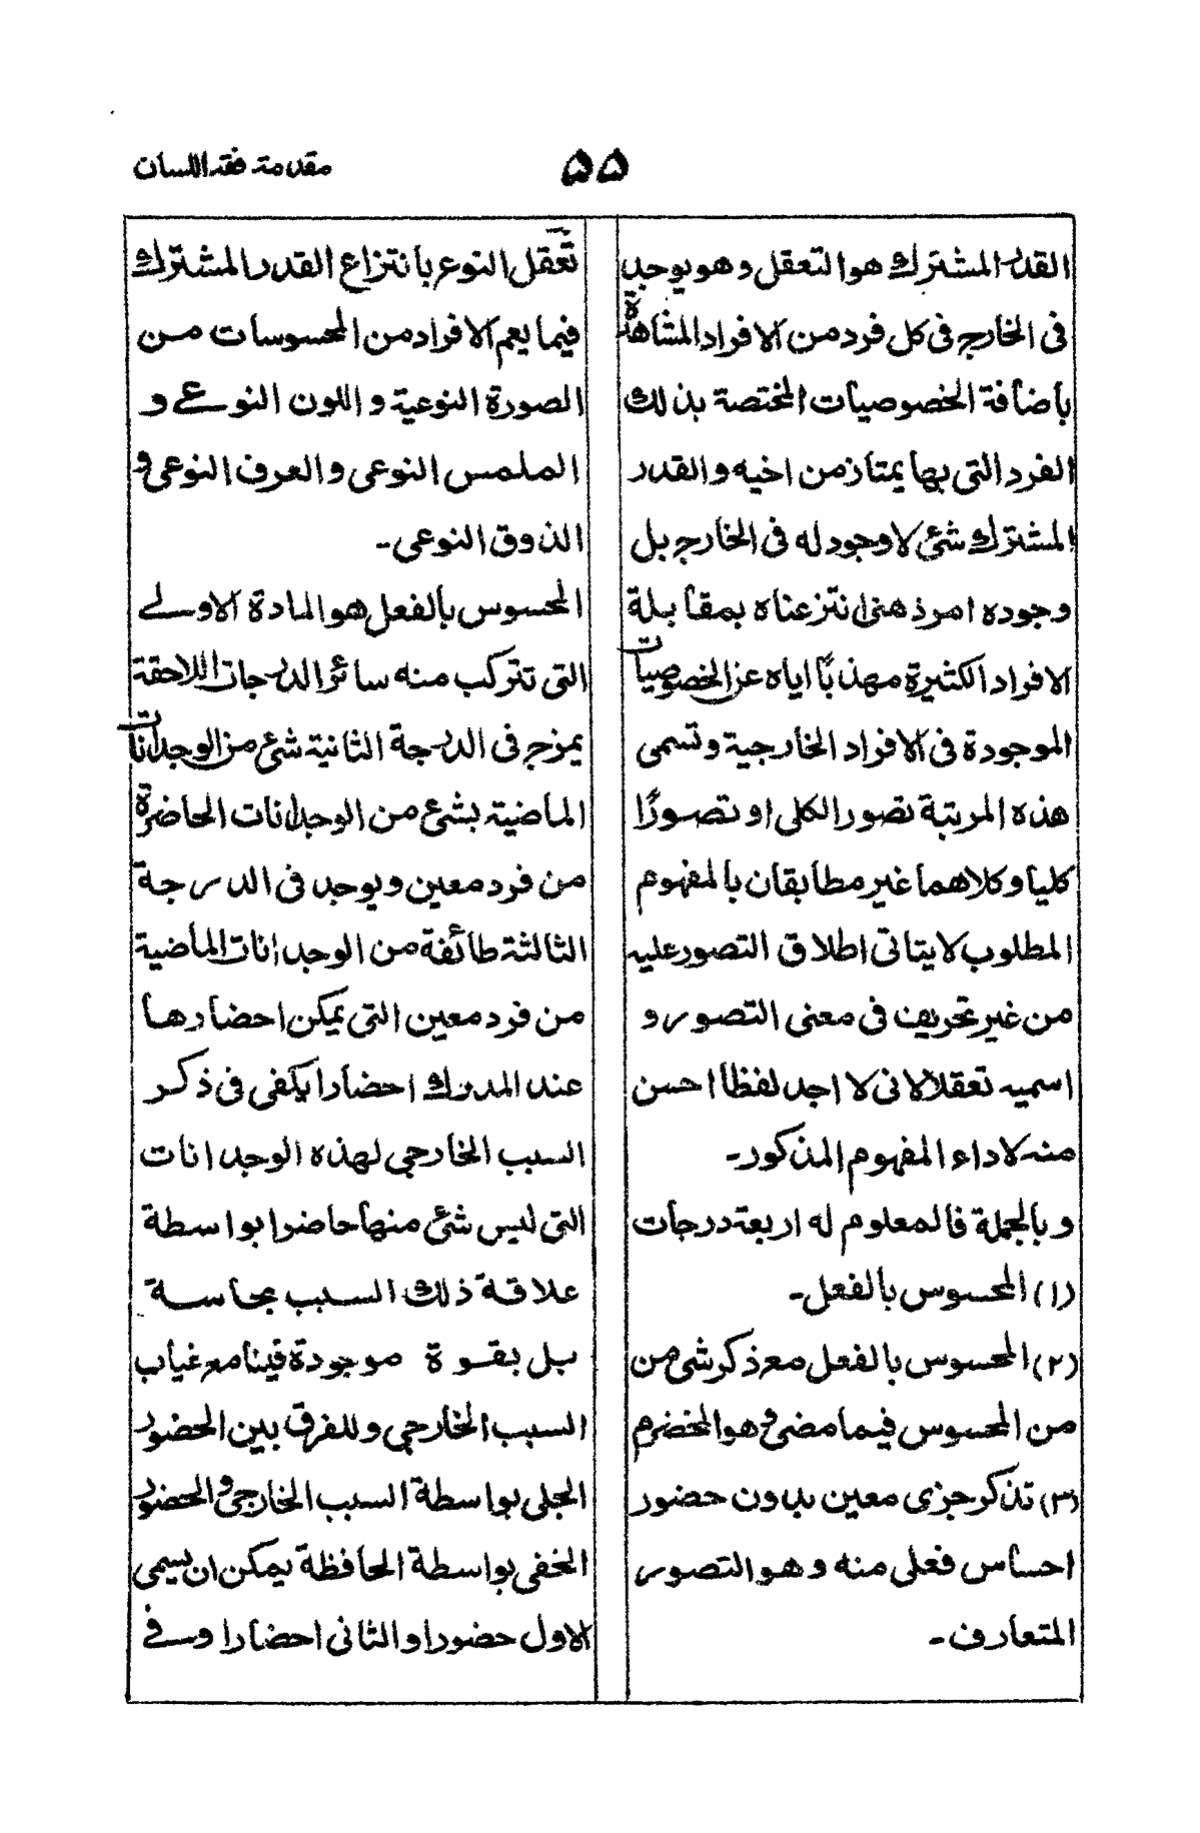 مقدمة فقه اللسان
۵۵
القدر المشترك هو التعقل وهو يوجد
فى الخارج فى كل فرد من الافراد المشاهدة
بأضافة الخصوصيات المختصة بذلك
الفرد التى بها يمتاز من اخيه والقدر
المشترك شئ لا وجود له فى الخارج بل
وجوده امر ذهنى انتزعناه بمقابلة
الافراد الكثيرة مهذبًا اياه عن الخصوصيات
الموجودة فى الافراد الخارجية وتسمى
هذه المرتبة تصور الكلى او تصورًا
كليا وكلاهما غير مطابقان بالمفهوم
المطلوب لا يتاتى اطلاق التصور عليه
من غير تحريف فى معنى التصور و
اسميه تعقلا لانى لا اجد لفظا احسن
منه لاداء المفهوم المذكور۔
وبالجملة فالمعلوم له اربعة درجات
(۱) المحسوس بالفعل۔
(۲) المحسوس بالفعل مع ذكر شئ من
من المحسوس فيما مضى وهو المخضرم
(۳) تذكر جزى معين بدون حضور
احساس فعلى منه وهو التصور
المتعارف۔
تعقل النوع بانتزاع القدر المشترك
فيما يعم الافراد من المحسوسات من
الصورة النوعية واللون النوعى و
الملمس النوعى والعرف النوعى و
الذوق النوعى۔
المحسوس بالفعل هو المادة الاولى
التى تتركب منه سائر الدرجات اللاحقة
يمزج فى الدرجة الثانية شئ من الوجدانات
الماضية بشئ من الوجدانات الحاضرة
من فرد معين ويوجد فى الدرجة
الثالثة طائفة من الوجدانات الماضية
من فرد معين التى يمكن احضارها
عند المدرك احضارا يكفى فى ذكر
السبب الخارجى لهذه الوجدانات
التى ليس شئ منها حاضرا بواسطة
علاقة ذلك السبب بحاسة
بل بقوة موجودة فينا مع غياب
السبب الخارجى وللفرق بين الحضور
الجلى بواسطة السبب الخارجى والحضور
الخفى بواسطة الحافظة يمكن ان يسمى
الاول حضورا والثانى احضارا وفى